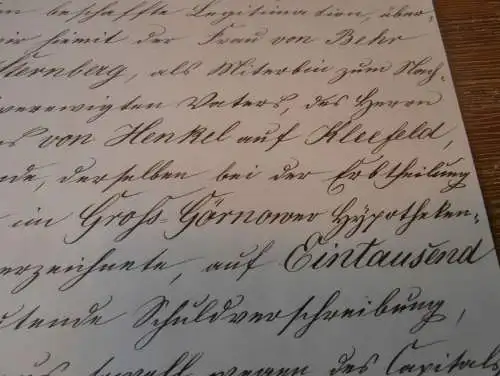 n beschaffte Legitimation, über-
wir hiemit der Frau von Behr
Sternberg, als Miterbin zum Nach-
verewigten Vaters, des Herrn
von Henkel auf Kleefeld,
nde, derselben bei der Erbtheilung
im Gross Görnower Hypotheken-
verzeichnete, auf Eintausend
utende Schuldverschreibung,
sowohl wegen des Capitals